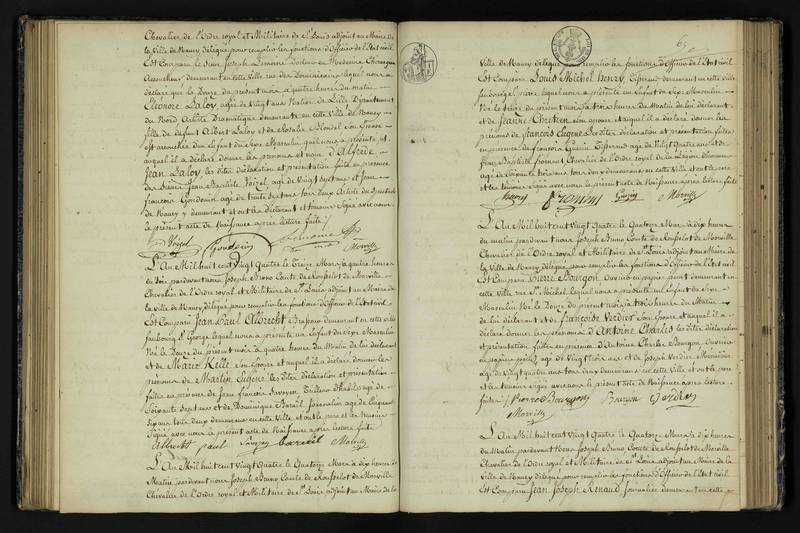 Chevalier de l'Ordre royal et Militaire de St Louis adjoint au Maire de
la Ville de Nancy délégué pour remplir les fonctions d'Officier de l'Etat civil
Est Comparu le Sieur Joseph Lemoine Docteur en Médecine Chirurgien
Accoucheur demeurant en cette Ville rue des Dominicains lequel nous a
déclaré que le Douze du présent mois à quatre heures du matin
Eléonore Laloy, agée de Vingt ans Native de Lille Département
du Nord Artiste Dramatique demeurante en cette Ville de Nancy
fille de défunt Albert Laloy et de Rosalie Blondel son Epouse
est accouchée d'un Enfant du Sexe Masculin qu'il nous a présenté, et
auquel il a déclaré donner les prénoms et nom d'Alfrede
Jean Laloy, les dites déclaration et présentation faites en présence
des Sieurs Jean Baptiste Voizel agé de Vingt sept ans et Jean
François Goudouin agé de trente sept ans tous deux Artistes du Spectacle
de Nancy y demeurant et ont les déclarant et témoins Signé avec nous
le présent acte de Naissance après lecture faite
Lemoine
Morville
L'An Mil huit cent Vingt Quatre le Treize Mars à quatre heures
du soir pardevant nous Joseph Bruno Comte de Rousselot de Morville
Chevalier de l'Ordre royal et Militaire de St Louis adjoint au Maire de
la Ville de Nancy délégué pour remplir les fonctions d'Officier de l'Etat civil
Est Comparu Jean Paul Albrecht Brasseur demeurant en cette ville
faubourg St George lequel nous a présenté un Enfant du Sexe Masculin
Né le Douze du présent mois à quatre heures du Matin de lui déclarant
et de Marie Kelle son Epouse et auquel il a déclaré donner les
prénoms de Martin Eugène les dites déclaration et présentation
faites en présence de Jean François Tailleur d'habits agé de
Soixante sept ans et de Dominique Journalier agé de Cinquante
Six ans tous deux demeurant en cette Ville, et ont le père et les témoins
Signé avec nous le présent acte de Naissance après lecture faite
Albrecht paul Morville
L'An Mil huit cent Vingt Quatre le Quatorze Mars à dix heures du
Matin pardevant nous Joseph Bruno Comte de Rousselot de Morville
Chevalier de l'Ordre royal et Militaire de St Louis adjoint au Maire de la
Ville de Nancy délégué pour remplir les fonctions d'Officier de l'Etat civil
Est Comparu Louis Michel Henry, Tisserand demeurant en cette Ville
faubourg St pierre lequel nous a présenté un Enfant du Sexe Masculin
Né le treize du présent mois à trois heures du Matin de lui déclarant
et de Jeanne Chretien son épouse et auquel il a déclaré donner les
prénoms de François Eugène les dites déclaration et présentation faites
en présence de François Tisserand agé de Vingt quatre ans et de
Jean Baptiste Chevalier de l'Ordre royal de la Légion d'honneur
agé de ans tous deux demeurant en cette Ville et ont le père
et les témoins signé avec nous le présent acte de Naissance après lecture faite
henry Morville
L'An Mil huit cent Vingt Quatre le Quatorze Mars à dix heures
du matin pardevant nous Joseph Bruno Comte de Rousselot de Morville
Chevalier de l'Ordre royal et Militaire de St Louis adjoint au Maire de
la Ville de Nancy délégué pour remplir les fonctions d'Officier de l'Etat civil
Est Comparu Pierre Bourgon Ouvrier en papiers peints demeurant en
cette Ville rue St Michel lequel nous a présenté un Enfant du Sexe
Masculin Né le Douze du présent mois à trois heures du Matin
de lui déclarant et de Françoise Verdier son Epouse et auquel il a
déclaré donner les prénoms d'Antoine Charles les dites déclaration
et présentation faites en présence d'Antoine Charles Bourgon Ouvrier
en papiers peints agé de Vingt trois ans et de Joseph Verdier
agé de Vingt quatre ans tous deux demeurant en cette Ville et ont le père
et les témoins Signé avec nous le présent acte de Naissance après lecture
faite Pierre Bourgon Bourgon Verdier
Morville
L'An Mil huit cent Vingt Quatre le Quatorze Mars à dix heures
du Matin pardevant Nous Joseph Bruno Comte de Rousselot de Morville
Chevalier de l'Ordre royal et Militaire de St Louis adjoint au Maire de la
Ville de Nancy délégué pour remplir les fonctions d'Officier de l'Etat civil
Est Comparu Jean Joseph Renaud Journalier demeurant en cette